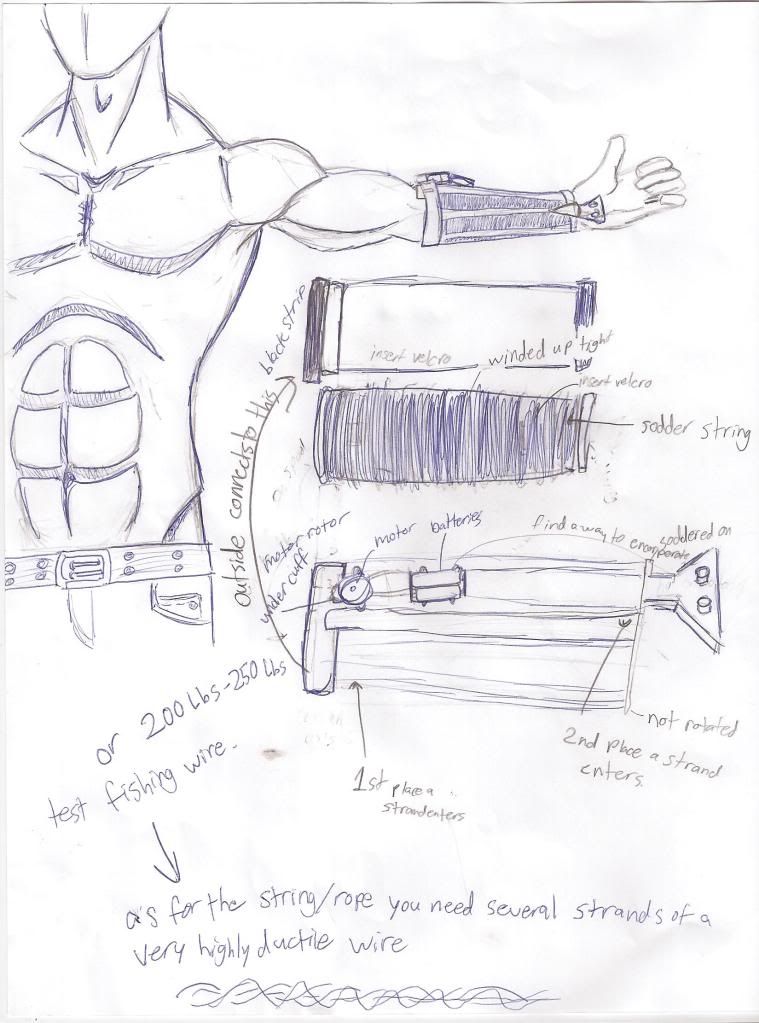 black strip
insert velcro
winded up tight
insert velcro
sodder string
outside connects to this
motor rotor
under cuff
motor
batteries
find a way to
soddered on
1st place a
strand enters
2nd place a strand
enters.
not rotated
or 200 Lbs-250 Lbs
test fishing wire.
as for the string/rope you need several strands of a
very highly ductile wire